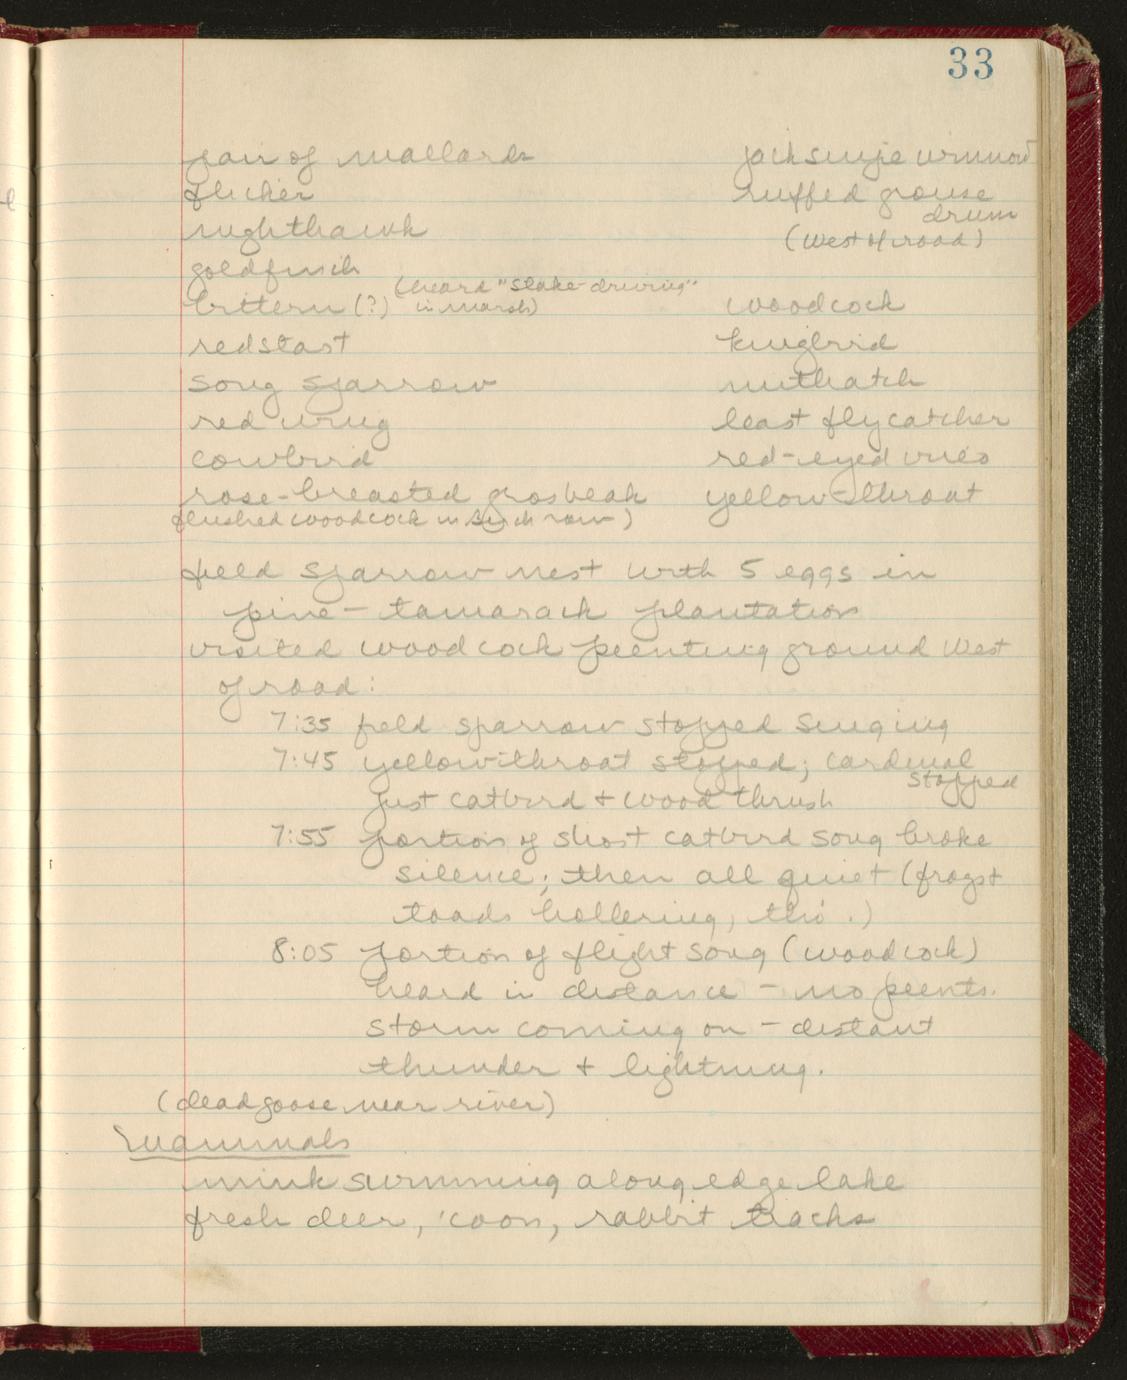 33
pair of mallards
flicker
nighthawk
goldfinch
bittern (?) (heard "stake-driving"
in marsh)
redstart
song sparrow
red wing
cowbird
rose-breasted grosbeak
flushed woodcock in Birch row)
jack snipe winnow
ruffed grouse
drum
(West of road)
woodcock
kingbird
nuthatch
least flycatcher
red-eyed vireo
yellow-throat
field sparrow nest with 5 eggs in
pine - tamarack plantation
visited woodcock peenting ground West
of road:
7:35 field sparrow stopped singing
7:45 yellowthroat stopped; cardinal
stopped
just catbird + wood thrush
7:55 portion of short catbird song broke
silence; then all quiet (frogs +
toads hollering, tho'.)
8:05 portion of flight song (woodcock)
heard in distance - no peents.
storm coming on - distant
thunder + lightning.
(dead goose near river)
Mammals
mink swimming along edge lake
fresh deer, 'coon, rabbit tracks